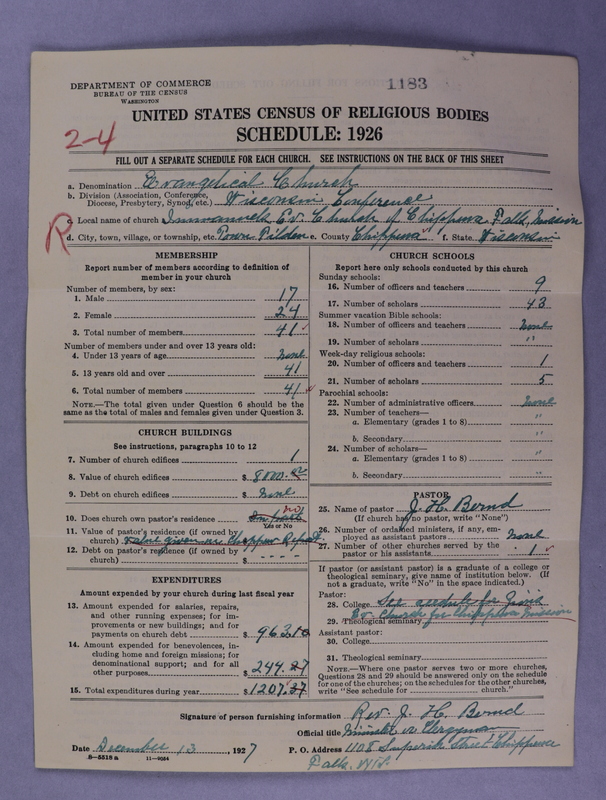 1183
DEPARTMENT OF COMMERCE
BUREAU OF THE CENSUS
WASHINGTON
UNITED STATES CENSUS OF RELIGIOUS BODIES
2-4
SCHEDULE: 1926
FILL OUT A SEPARATE SCHEDULE FOR EACH CHURCH. SEE INSTRUCTIONS ON THE BACK OF THIS SHEET
a. Denomination Evangelical Church
b. Division (Association, Conference, Diocese, Presbytery, Synod, etc.) Wisconsin Conference
R
c. Local name of church Immanuels Ev. Church of Chippewa Falls, Mission
d. City, town, village, or township, etc. Town Tilden e. County Chippewa f. State Wisconsin
MEMBERSHIP
Report number of members according to definition of
member in your church
Number of members, by sex:
1. Male 17
2. Female 24
3. Total number of members 41
Number of members under and over 13 years old:
4. Under 13 years of age None
5. 13 years old and over 41
6. Total number of members 41
NOTE.—The total given under Question 6 should be the
same as the total of males and females given under Question 3.
CHURCH BUILDINGS
See instructions, paragraphs 10 to 12
7. Number of church edifices 1
8. Value of church edifices $ 8000.00
9. Debt on church edifices $ None
10. Does church own pastor's residence no
Yes or No
11. Value of pastor's residence (if owned by
church) Value given in Chippewa Report
12. Debt on pastor's residence (if owned by
church) $ - - - -
EXPENDITURES
Amount expended by your church during last fiscal year
13. Amount expended for salaries, repairs,
and other running expenses; for im-
provements or new buildings; and for
payments on church debt $ 963.10
14. Amount expended for benevolences, in-
cluding home and foreign missions; for
denominational support; and for all
other purposes $ 244.27
15. Total expenditures during year $ 1207.37
CHURCH SCHOOLS
Report here only schools conducted by this church
Sunday schools:
16. Number of officers and teachers 9
17. Number of scholars 43
Summer vacation Bible schools:
18. Number of officers and teachers None
19. Number of scholars "
Week-day religious schools:
20. Number of officers and teachers 1
21. Number of scholars 5
Parochial schools:
22. Number of administrative officers None
23. Number of teachers—
a. Elementary (grades 1 to 8) "
b. Secondary "
24. Number of scholars—
a. Elementary (grades 1 to 8) "
b. Secondary "
PASTOR
25. Name of pastor J. H. Bernd
(If church has no pastor, write "None")
26. Number of ordained ministers, if any, em-
ployed as assistant pastors none
27. Number of other churches served by the
pastor or his assistants 1
If pastor (or assistant pastor) is a graduate of a college or
theological seminary, give name of institution below. (If
not a graduate, write "No" in the space indicated.)
Pastor:
28. College See schedule for
29. Theological seminary Ev. Church for Chippewa Mission
Assistant pastor:
30. College
31. Theological seminary
NOTE.—Where one pastor serves two or more churches,
Questions 28 and 29 should be answered only on the schedule
for one of the churches; on the schedules for the other churches,
write "See schedule for ______ church."
Signature of person furnishing information Rev. J. H. Bernd
Official title Minister or Clergyman
Date December 13, 1927 P. O. Address 1108 Superior Street Chippewa
Falls, Wis.
8—5518 a 11—9034